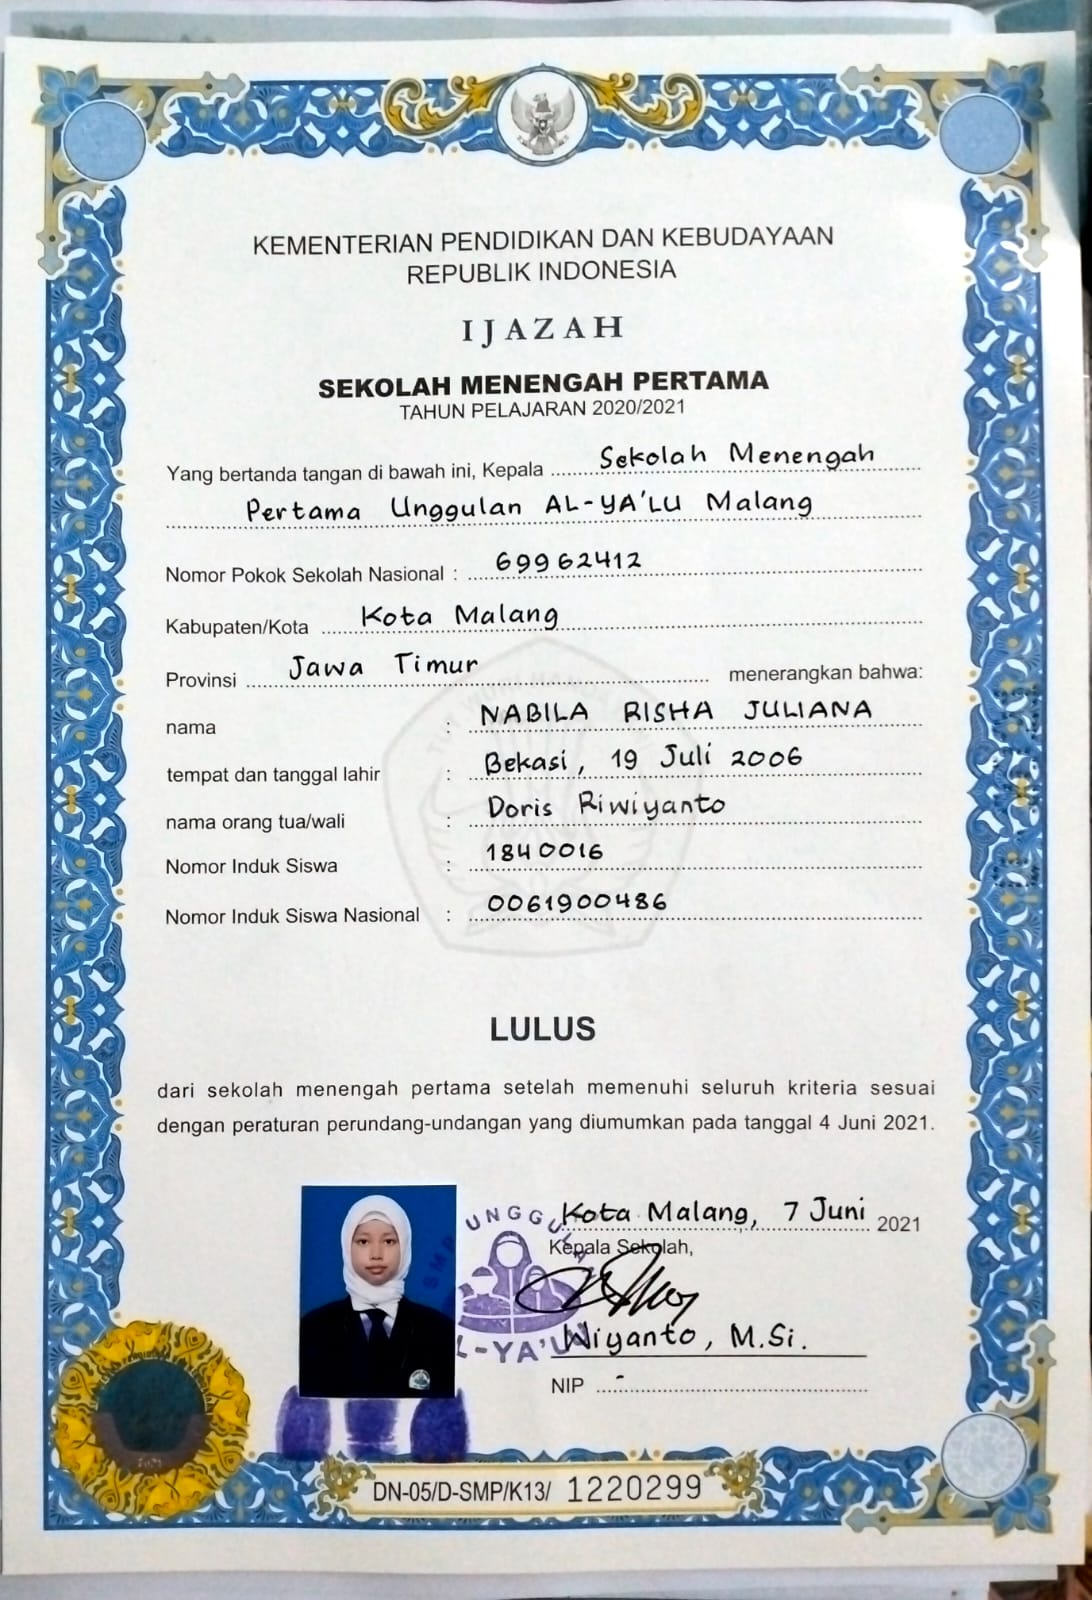 KEMENTERIAN PENDIDIKAN DAN KEBUDAYAAN
REPUBLIK INDONESIA
IJAZAH
SEKOLAH MENENGAH PERTAMA
TAHUN PELAJARAN 2020/2021
Yang bertanda tangan di bawah ini, Kepala Sekolah Menengah
Pertama Unggulan AL-YA'LU Malang
Nomor Pokok Sekolah Nasional : 69962412
Kabupaten/Kota Kota Malang
Provinsi Jawa Timur menerangkan bahwa:
nama : NABILA RISHA JULIANA
tempat dan tanggal lahir : Bekasi, 19 Juli 2006
nama orang tua/wali : Doris Riwiyanto
Nomor Induk Siswa : 1840016
Nomor Induk Siswa Nasional : 0061900486
LULUS
dari sekolah menengah pertama setelah memenuhi seluruh kriteria sesuai
dengan peraturan perundang-undangan yang diumumkan pada tanggal 4 Juni 2021.
Kota Malang, 7 Juni 2021
Kepala Sekolah,
SMP UNGGULAN
AL-YA'LU
Wiyanto, M.Si.
NIP -
2021
DN-05/D-SMP/K13/ 1220299